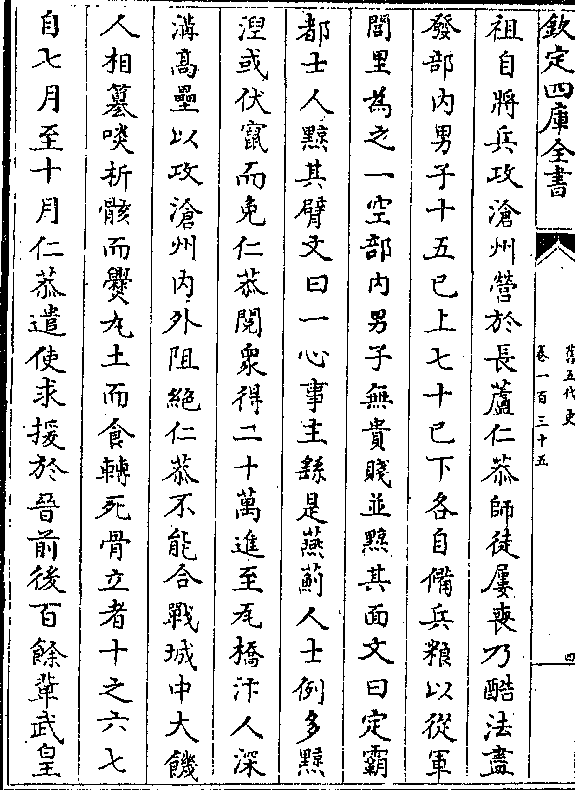 欽定四庫全書
舊五代史
卷一百三十五
四
祖自將兵攻滄州營於長蘆仁恭師徒屢喪乃酷法盡
發部内男子十五已上七十已下各自備兵粮以從軍
閭里為之一空部内男子無貴賤並黥其面文曰定霸
都士人黥其臂文曰一心事主繇是燕薊人士例多黥
涅或伏竄而免仁恭閲衆得二十萬進至瓦橋汴人深
溝髙壘以攻滄州内外阻絶仁恭不能合戰城中大饑
人相篡啖析骸而爨丸土而食轉死骨立者十之六七
自七月至十月仁恭遣使求援於晉前後百餘輩武皇